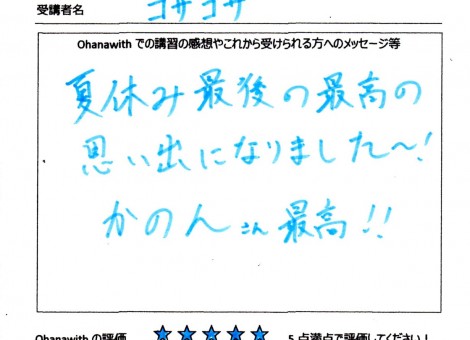 受講者名 コサコサ
Ohanawith での講習の感想やこれから受けられる方へのメッセージ等
夏休み最後の最高の
思い出になりました〜!
かのんさん最高!!
Ohanawith の評価 ★★★★★ 5点満点で評価してください!